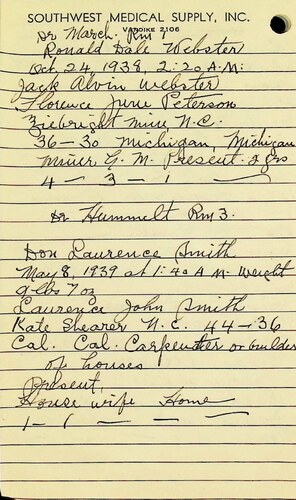 SOUTHWEST MEDICAL SUPPLY, INC.
VANDIKE 2106
Dr March, Rm 1
Ronald Dale Webster
Oct, 24 1938, 2:20 A.M.
Jack Alvin Webster
Florence June Peterson
mine N.C.
36-30 Michigan, Michigan
Miner G. M. Present. 2 yrs
4 - 3 - 1 - -
Dr Hummelt Rm 3.
Don Laurence Smith
May 8, 1939 at 1:40 A M. Weight
9 lbs 7 oz
Laurence John Smith
Kate Shearer N. C. 44-36
Cal. Cal. Carpenter or builder
of houses
Present,
House wife Home
1 - 1 - - -